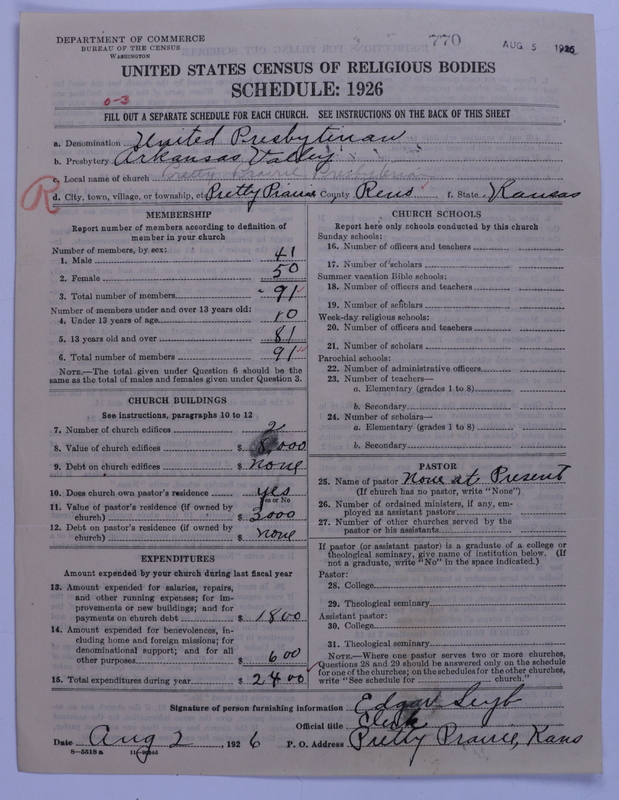 DEPARTMENT OF COMMERCE
BUREAU OF THE CENSUS
WASHINGTON
770
AUG 5 1926
UNITED STATES CENSUS OF RELIGIOUS BODIES
SCHEDULE: 1926
0-3
FILL OUT A SEPARATE SCHEDULE FOR EACH CHURCH. SEE INSTRUCTIONS ON THE BACK OF THIS SHEET
a. Denomination United Presbyterian
b. Presbytery Arkansas Valley
c. Local name of church Pretty Prairie Presbyterian
R
d. City, town, village, or township, etc. Pretty Prairie County Reno f. State Kansas
MEMBERSHIP
Report number of members according to definition of
member in your church
Number of members, by sex:
1. Male 41
2. Female 50
3. Total number of members 91
Number of members under and over 13 years old:
4. Under 13 years of age 10
5. 13 years old and over 81
6. Total number of members 91
NOTE.—The total given under Question 6 should be
same as the total of males and females given under Question 3.
CHURCH BUILDINGS
See instructions, paragraphs 10 to 12
7. Number of church edifices 2
8. Value of church edifices $ 8,000
9. Debt on church edifices $ none
10. Does church own pastor's residence yes
Yes or No
11. Value of pastor's residence (if owned by
church) $ 3000
12. Debt on pastor's residence (if owned by
church) $ none
EXPENDITURES
Amount expended by your church during last fiscal year
13. Amount expended for salaries, repairs,
and other running expenses; for im-
provements or new buildings; and for
payments on church debt $ 1800
14. Amount expended for benevolences, in-
cluding home and foreign missions; for
denominational support; and for all
other purposes $ 600
15. Total expenditures during year $ 2400
CHURCH SCHOOLS
Report here only schools conducted by this church
Sunday schools:
16. Number of officers and teachers
17. Number of scholars
Summer vacation Bible schools:
18. Number of officers and teachers
19. Number of scholars
Week-day religious schools:
20. Number of officers and teachers
21. Number of scholars
Parochial schools:
22. Number of administrative officers
23. Number of teachers—
a. Elementary (grades 1 to 8)
b. Secondary
24. Number of scholars—
a. Elementary (grades 1 to 8)
b. Secondary
PASTOR
25. Name of pastor None at Present
(If church has no pastor, write "None")
26. Number of ordained ministers, if any, em-
ployed as assistant pastors
27. Number of other churches served by the
pastor or his assistants
If pastor (or assistant pastor) is a graduate of a college or
theological seminary, give name of institution below. (If
not a graduate, write "No" in the space indicated.)
Pastor:
28. College
29. Theological seminary
Assistant pastor:
30. College
31. Theological seminary
NOTE.—Where one pastor serves two or more churches,
Questions 28 and 29 should be answered only on the schedule
for one of the churches; on the schedules for the other churches,
write "See schedule for church."
Signature of person furnishing information Edgar
Official title Clerk
Date Aug 2, 1926 P. O. Address Pretty Prairie, Kans
8—5518 a